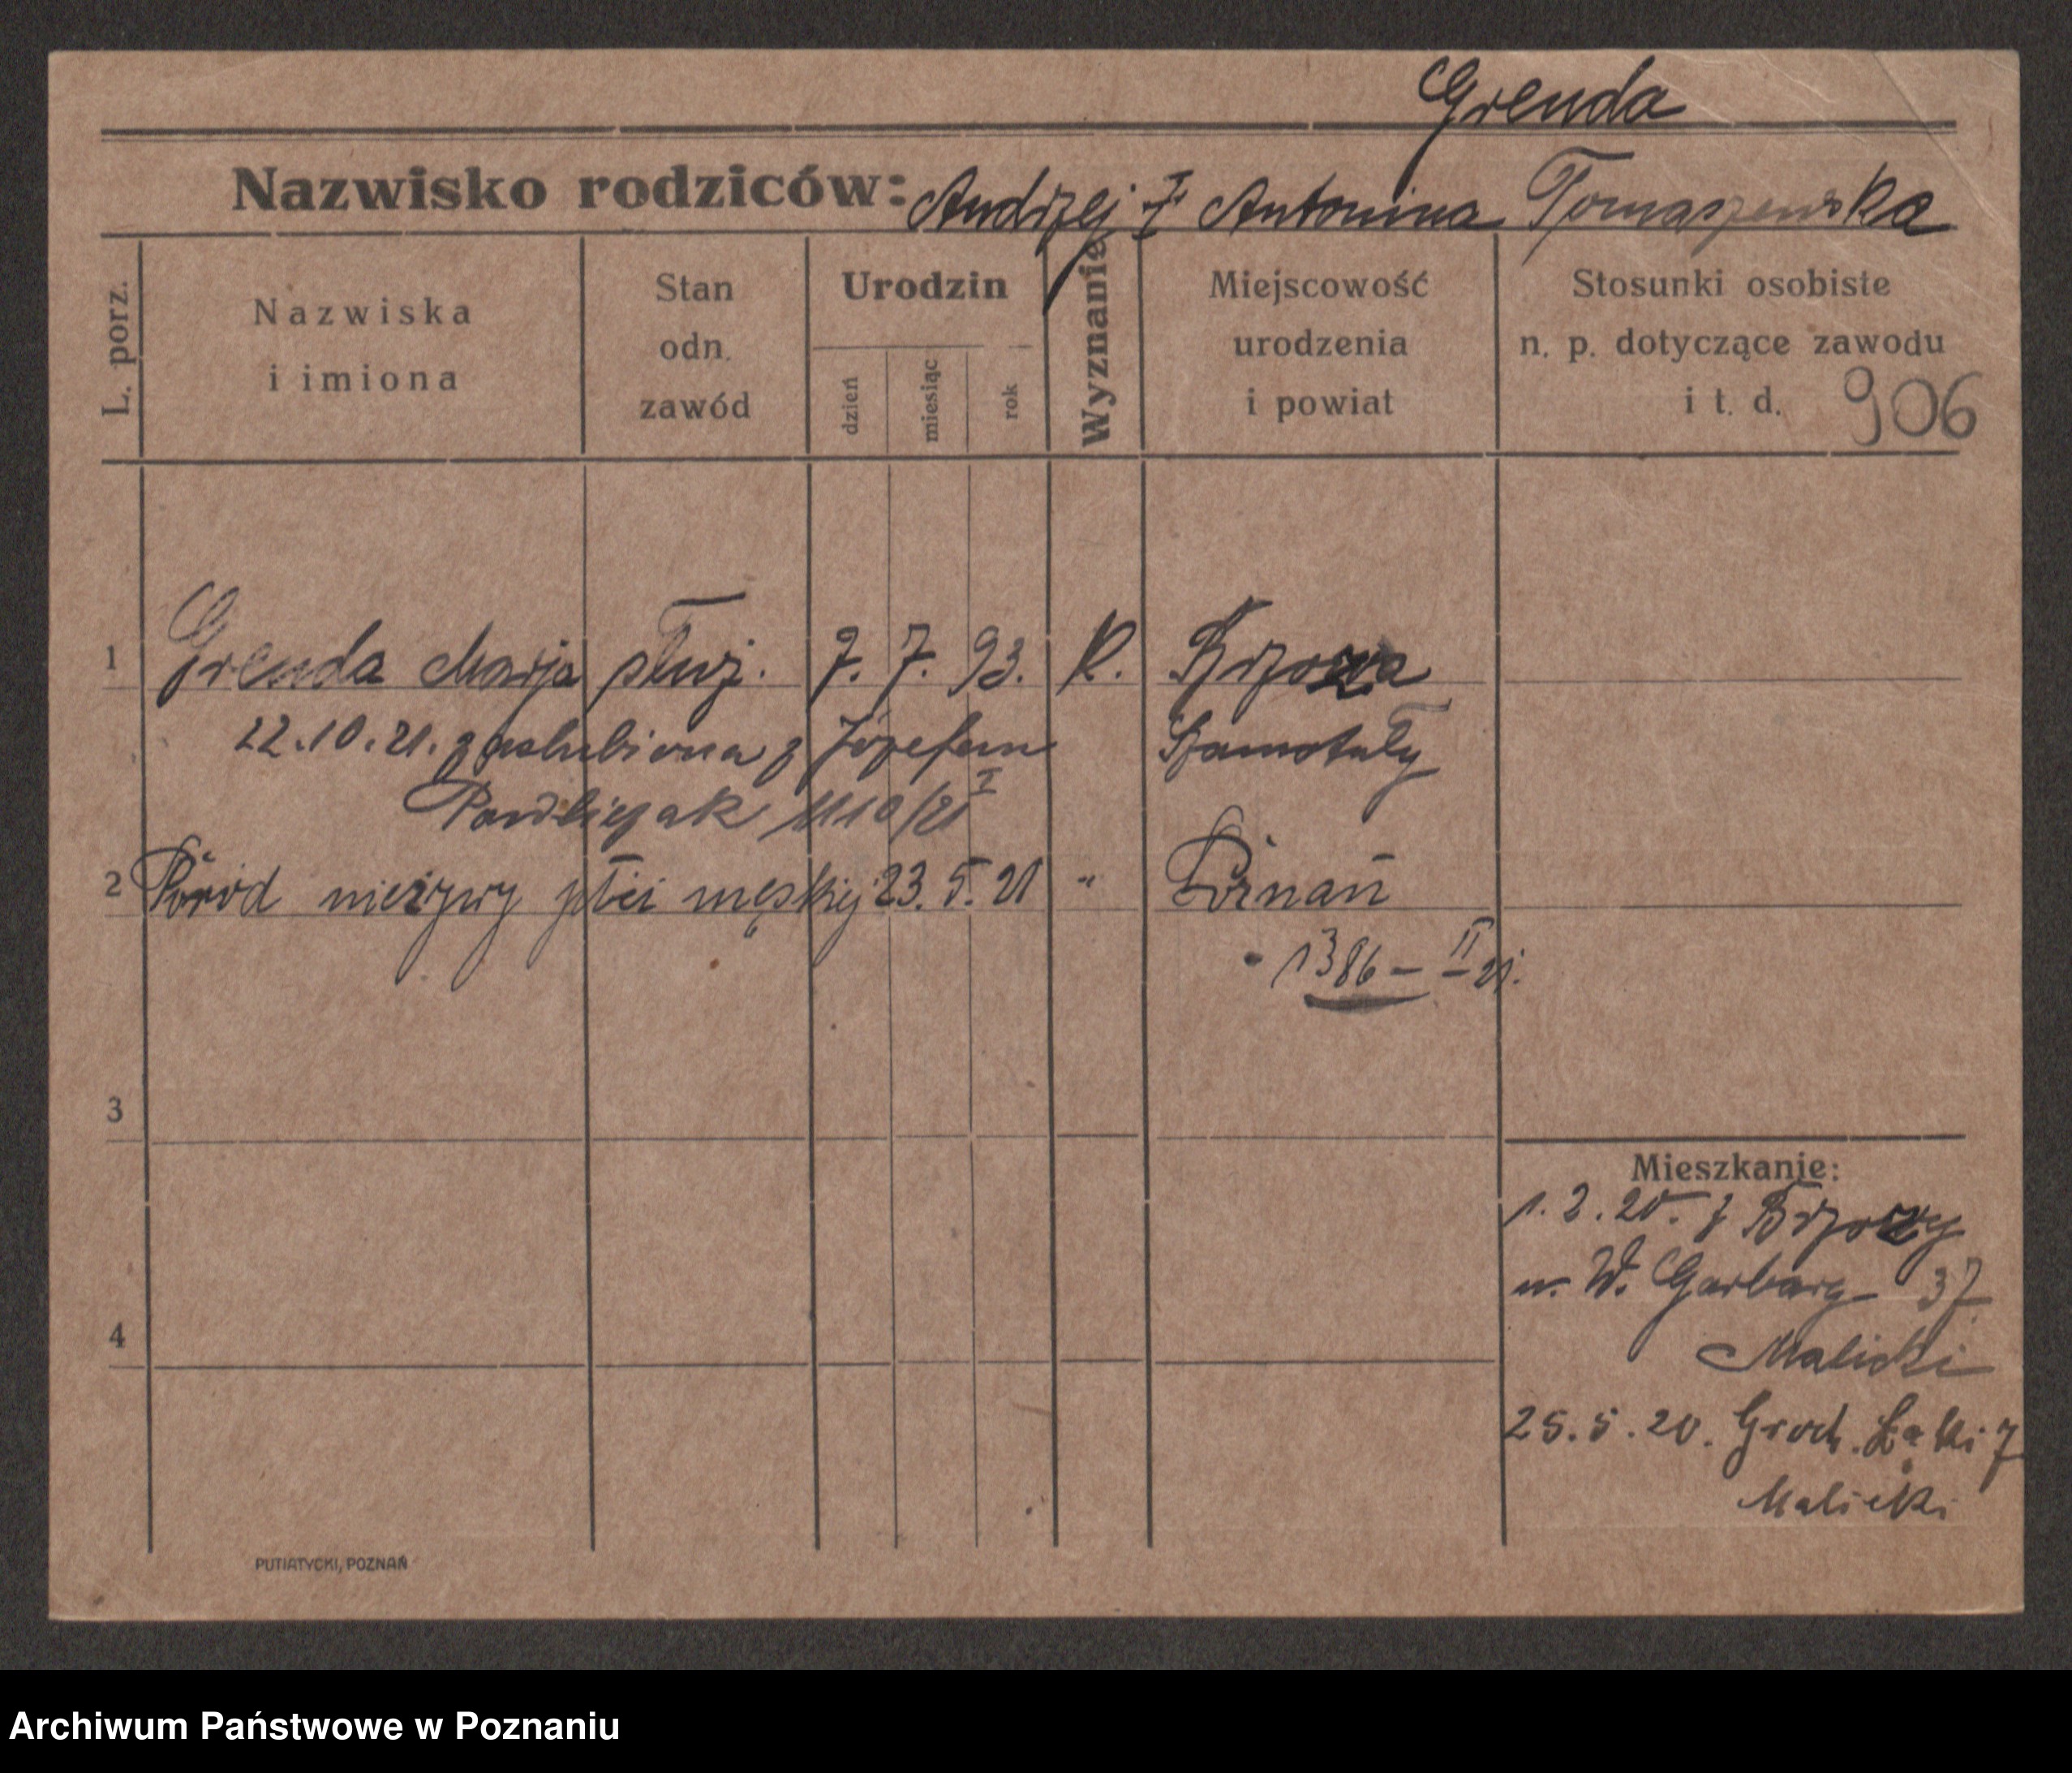 Grenda
Nazwisko rodziców: Andrzej I Antonina Tomaszewska
L. porz.
Nazwiska
i imiona
Stan
odn.
zawód
Urodzin
dzień
miesiąc
rok
Wyznanie
Miejscowość
urodzenia
i powiat
Stosunki osobiste
n. p. dotyczące zawodu
i t. d. 906
1 Grenda Marja służ. 7. 7. 93. K. Brzoza
22.10.21. zaslubiona z Józefem Szamotuły
1110/21 I
2 Poród nieżywy płci męskiej 23. 5. 21 " Poznań
1386 - II 21.
3
Mieszkanie:
1. 2. 20. z Brzozy
n. W. Garbary 37
4
Malicki
25. 5. 20. Groch. Łąki 7
Malicki
PUTIATYCKI, POZNAŃ
Archiwum Państwowe w Poznaniu